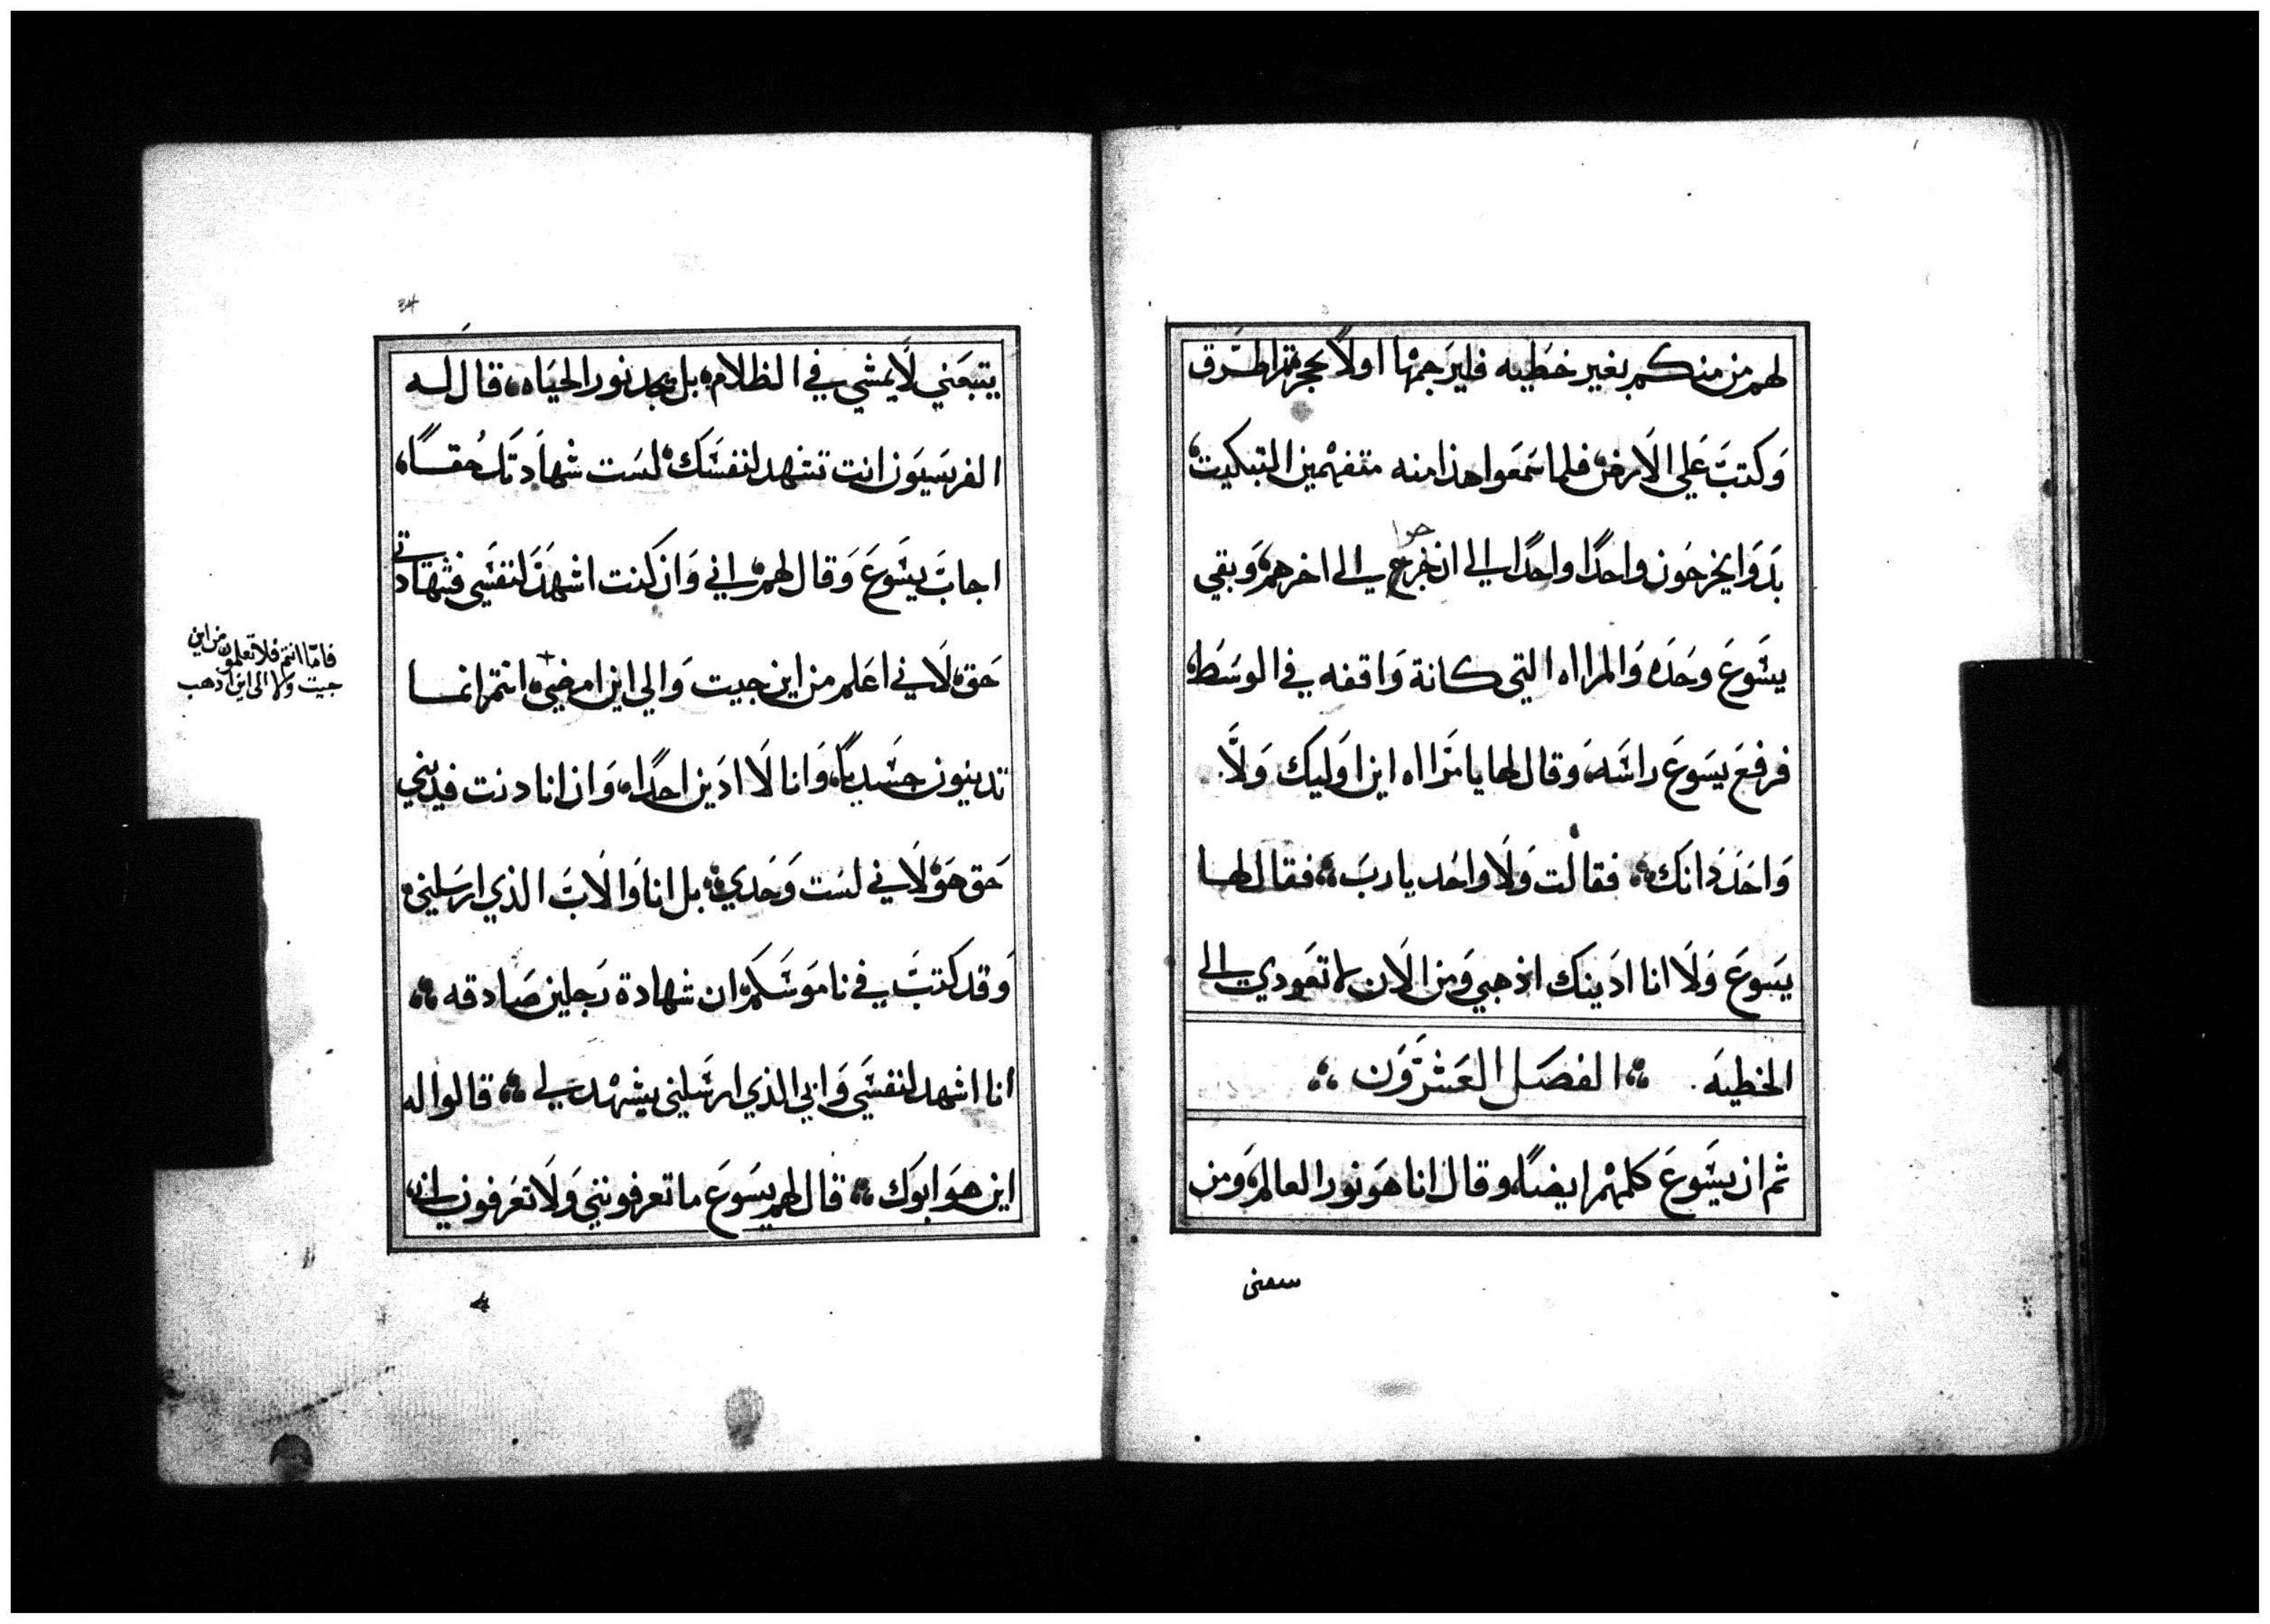 لهم من منكم بغير خطيه فليرجمها اولاً بحجر ثم اطرق
وَكتبَ عَلي الاَرض فلما سَمعَوا هذا منه متفهمين التبكيت
بدَوَا يخرجَون واحدًا واحدًا الي ان خرجوا الي اخرهم وَبقي
يسَوعَ وحَدَه وَالمرااه التي كانة وَاقفه في الوسَط
فرفعَ يسَوعَ راسَه وقال لها يا مرَااه اين اوَليك وَلَا
وَاحَدَ دَانكَ فقالت وَلَا واحَد يا ربَ فقال لها
يسَوعَ وَلَا انا ادَينك اذهبي وَمن الاَن لا تعَودي الي
الخطيهَ الفصَل العَشرَوَن
ثم ان يسَوعَ كلمهم ايضاً وقال انا هَو نور العالم وَمن
سعنى
34
يتبعَني لَا يمشي في الظلام بل يجد نور الحيَاه قال له
الفريسَيوَن انت تشهد لنفسَكَ لسَت شهادَتكَ حُقاً
اجابَ يسَوعَ وَقال لهم اني وَان كنت اشهدَ لنفسَي فشهادَتي
حَق لاَني اعَلم من اين جيت وَالي اين امضي انتم انما
فامّا انتم فلا تعلمون من اين
جيت ولا الى اين اذهب
تدينون جسَدياً وَانا لَا ادَين احدًا وَان انا دنت فديني
حَق هَو لاَني لسَت وَحَدي بل انا وَالاَبَ الذي ارسَلني
وَقد كتبَ في ناموَسَكم ان شهادة رَجلين صَادقه
انا اشهد لنفسَي وَابي الذي ارسَلني يشهد لي قالوا له
اين هوَ ابوَك قال لهم يسَوعَ ما تعرفونني وَلَا تعَرفون ابي